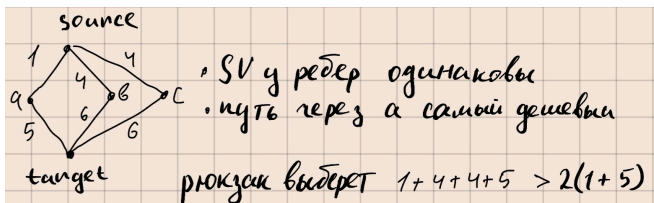 source
1
4
4
a
B
C
5
6
6
target
• SV у ребер одинаковы
• путь через a самый дешевый
рюкзак выберет 1+4+4+5 > 2(1+5)